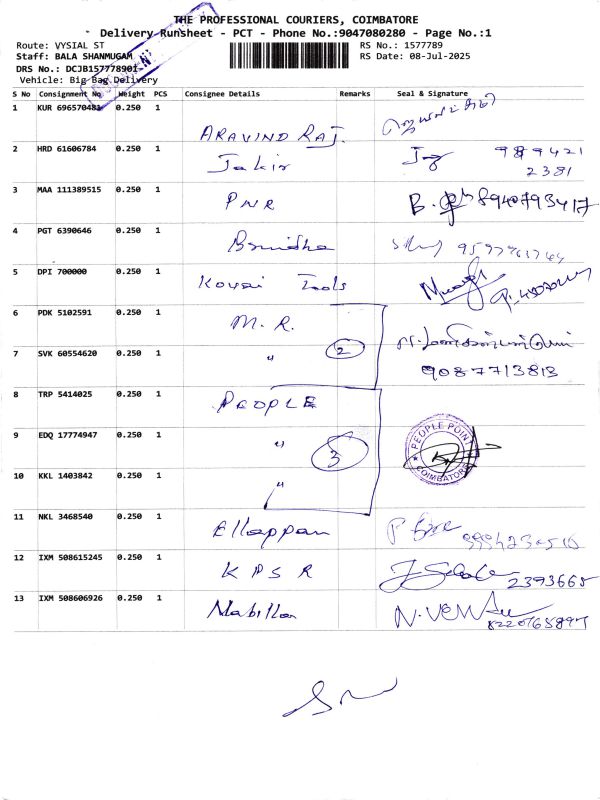 THE PROFESSIONAL COURIERS, COIMBATORE
Delivery Runsheet - PCT - Phone No.:9047080280 - Page No.:1
Route: VYSIAL ST RS No.: 1577789
Staff: BALA SHANMUGAM RS Date: 08-Jul-2025
DRS No.: DCJB157778901
Vehicle: Big Bag Delivery
S No Consignment No Weight PCS Consignee Details Remarks Seal & Signature
1 KUR 696570481 0.250 1 ARAVIND RAJ.
2 HRD 61606784 0.250 1 Jakir 989421
2381
3 MAA 111389515 0.250 1 PNR 8940793417
4 PGT 6390646 0.250 1
5 DPI 700000 0.250 1 Kovai Tools
6 PDK 5102591 0.250 1 M. R.
7 SVK 60554620 0.250 1 " 2 9087713813
8 TRP 5414025 0.250 1 PEOPLE
9 EDQ 17774947 0.250 1 " 3 PEOPLE POINT
COIMBATORE
10 KKL 1403842 0.250 1 "
11 NKL 3468540 0.250 1 Ellappan
12 IXM 508615245 0.250 1 KPSR 2393665
13 IXM 508606926 0.250 1 Nabilla